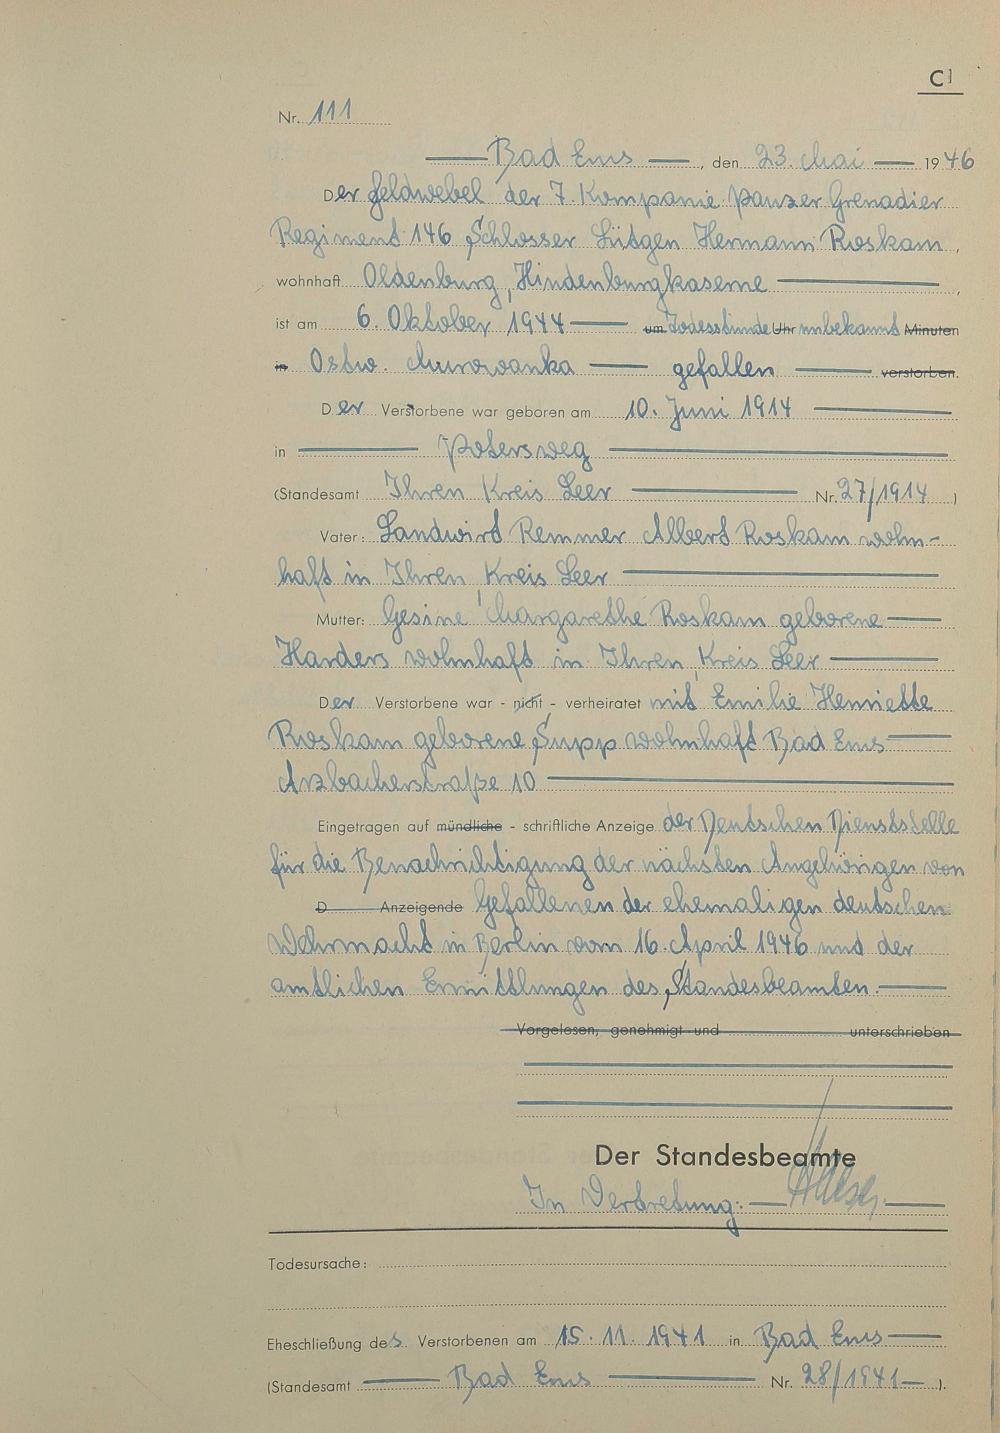 C1
Nr. 111
Bad Ems, den 23. Mai 1946
Der Feldwebel der 7. Kompanie Panzer Grenadier
Regiment 146, Schlosser Lütgen Hermann Roskam,
wohnhaft Oldenburg, Hindenburgkaserne,
ist am 6. Oktober 1944 um Todesstunde Uhr unbekannt Minuten
in Ostw. Murowanka gefallen verstorben.
Der Verstorbene war geboren am 10. Juni 1914
in Patersweg
(Standesamt Ihren Kreis Leer Nr. 27/1914)
Vater: Landwirt Remmer Albert Roskam wohn-
haft in Ihren, Kreis Leer
Mutter: Gesine Margarethe Roskam geborene
Harders wohnhaft in Ihren, Kreis Leer
Der Verstorbene war - nicht - verheiratet mit Emilie Henriette
Roskam geborene Supp wohnhaft Bad Ems
Arzbacherstraße 10
Eingetragen auf mündliche - schriftliche Anzeige der Deutschen Dienststelle
für die Benachrichtigung der nächsten Angehörigen von
D Anzeigende Gefallenen der ehemaligen deutschen
Wehrmacht in Berlin vom 16. April 1946 und der
amtlichen Ermittlungen des Standesbeamten.
Vorgelesen, genehmigt und unterschrieben
Der Standesbeamte
In Vertretung:
Todesursache:
Eheschließung des Verstorbenen am 15. 11. 1941 in Bad Ems
(Standesamt Bad Ems Nr. 28/1941).